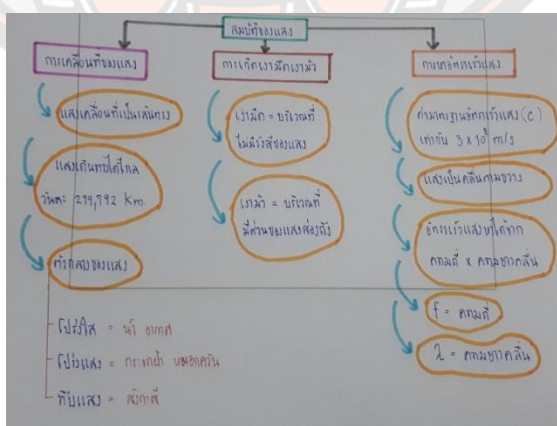 สมบัติของแสง
การเคลื่อนที่ของแสง
แสงเคลื่อนที่เป็นเส้นตรง
แสงเดินทางได้ไกล
วินาทีละ 299,792 Km.
ตัวกลางของแสง
โปร่งใส = น้ำ อากาศ
โปร่งแสง = กระจกฝ้า หมอกควัน
ทึบแสง = สังกะสี
การเกิดเงามืดเงามัว
เงามืด = บริเวณที่
ไม่มีรังสีของแสง
เงามัว = บริเวณที่
มีส่วนของแสงส่องถึง
การหาอัตราเร็วแสง
ค่ามาตรฐานอัตราเร็วแสง (c)
เท่ากับ 3 x 10⁸ m/s
แสงเป็นคลื่นตามขวาง
อัตราเร็วแสงหาได้จาก
ความถี่ x ความยาวคลื่น
f = ความถี่
λ = ความยาวคลื่น